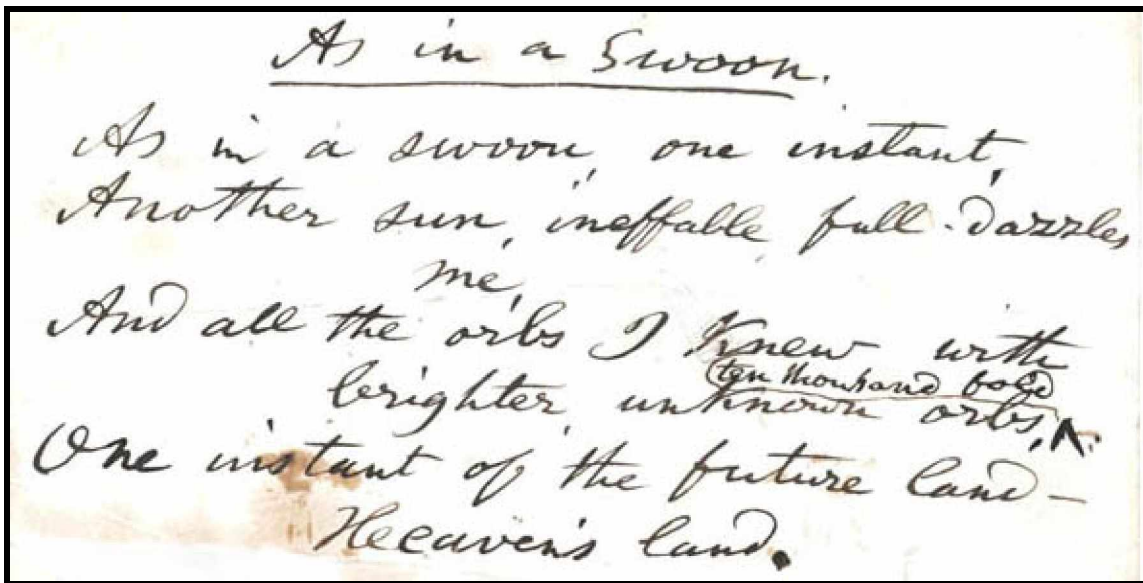 As in a Swoon.
As in a swoon, one instant,
Another sun, ineffable, full-dazzles
me,
And all the orbs I Knew with
(ten thousand fold
brighter, unknown orbs, ^
One instant of the future land –
Heaven's land.